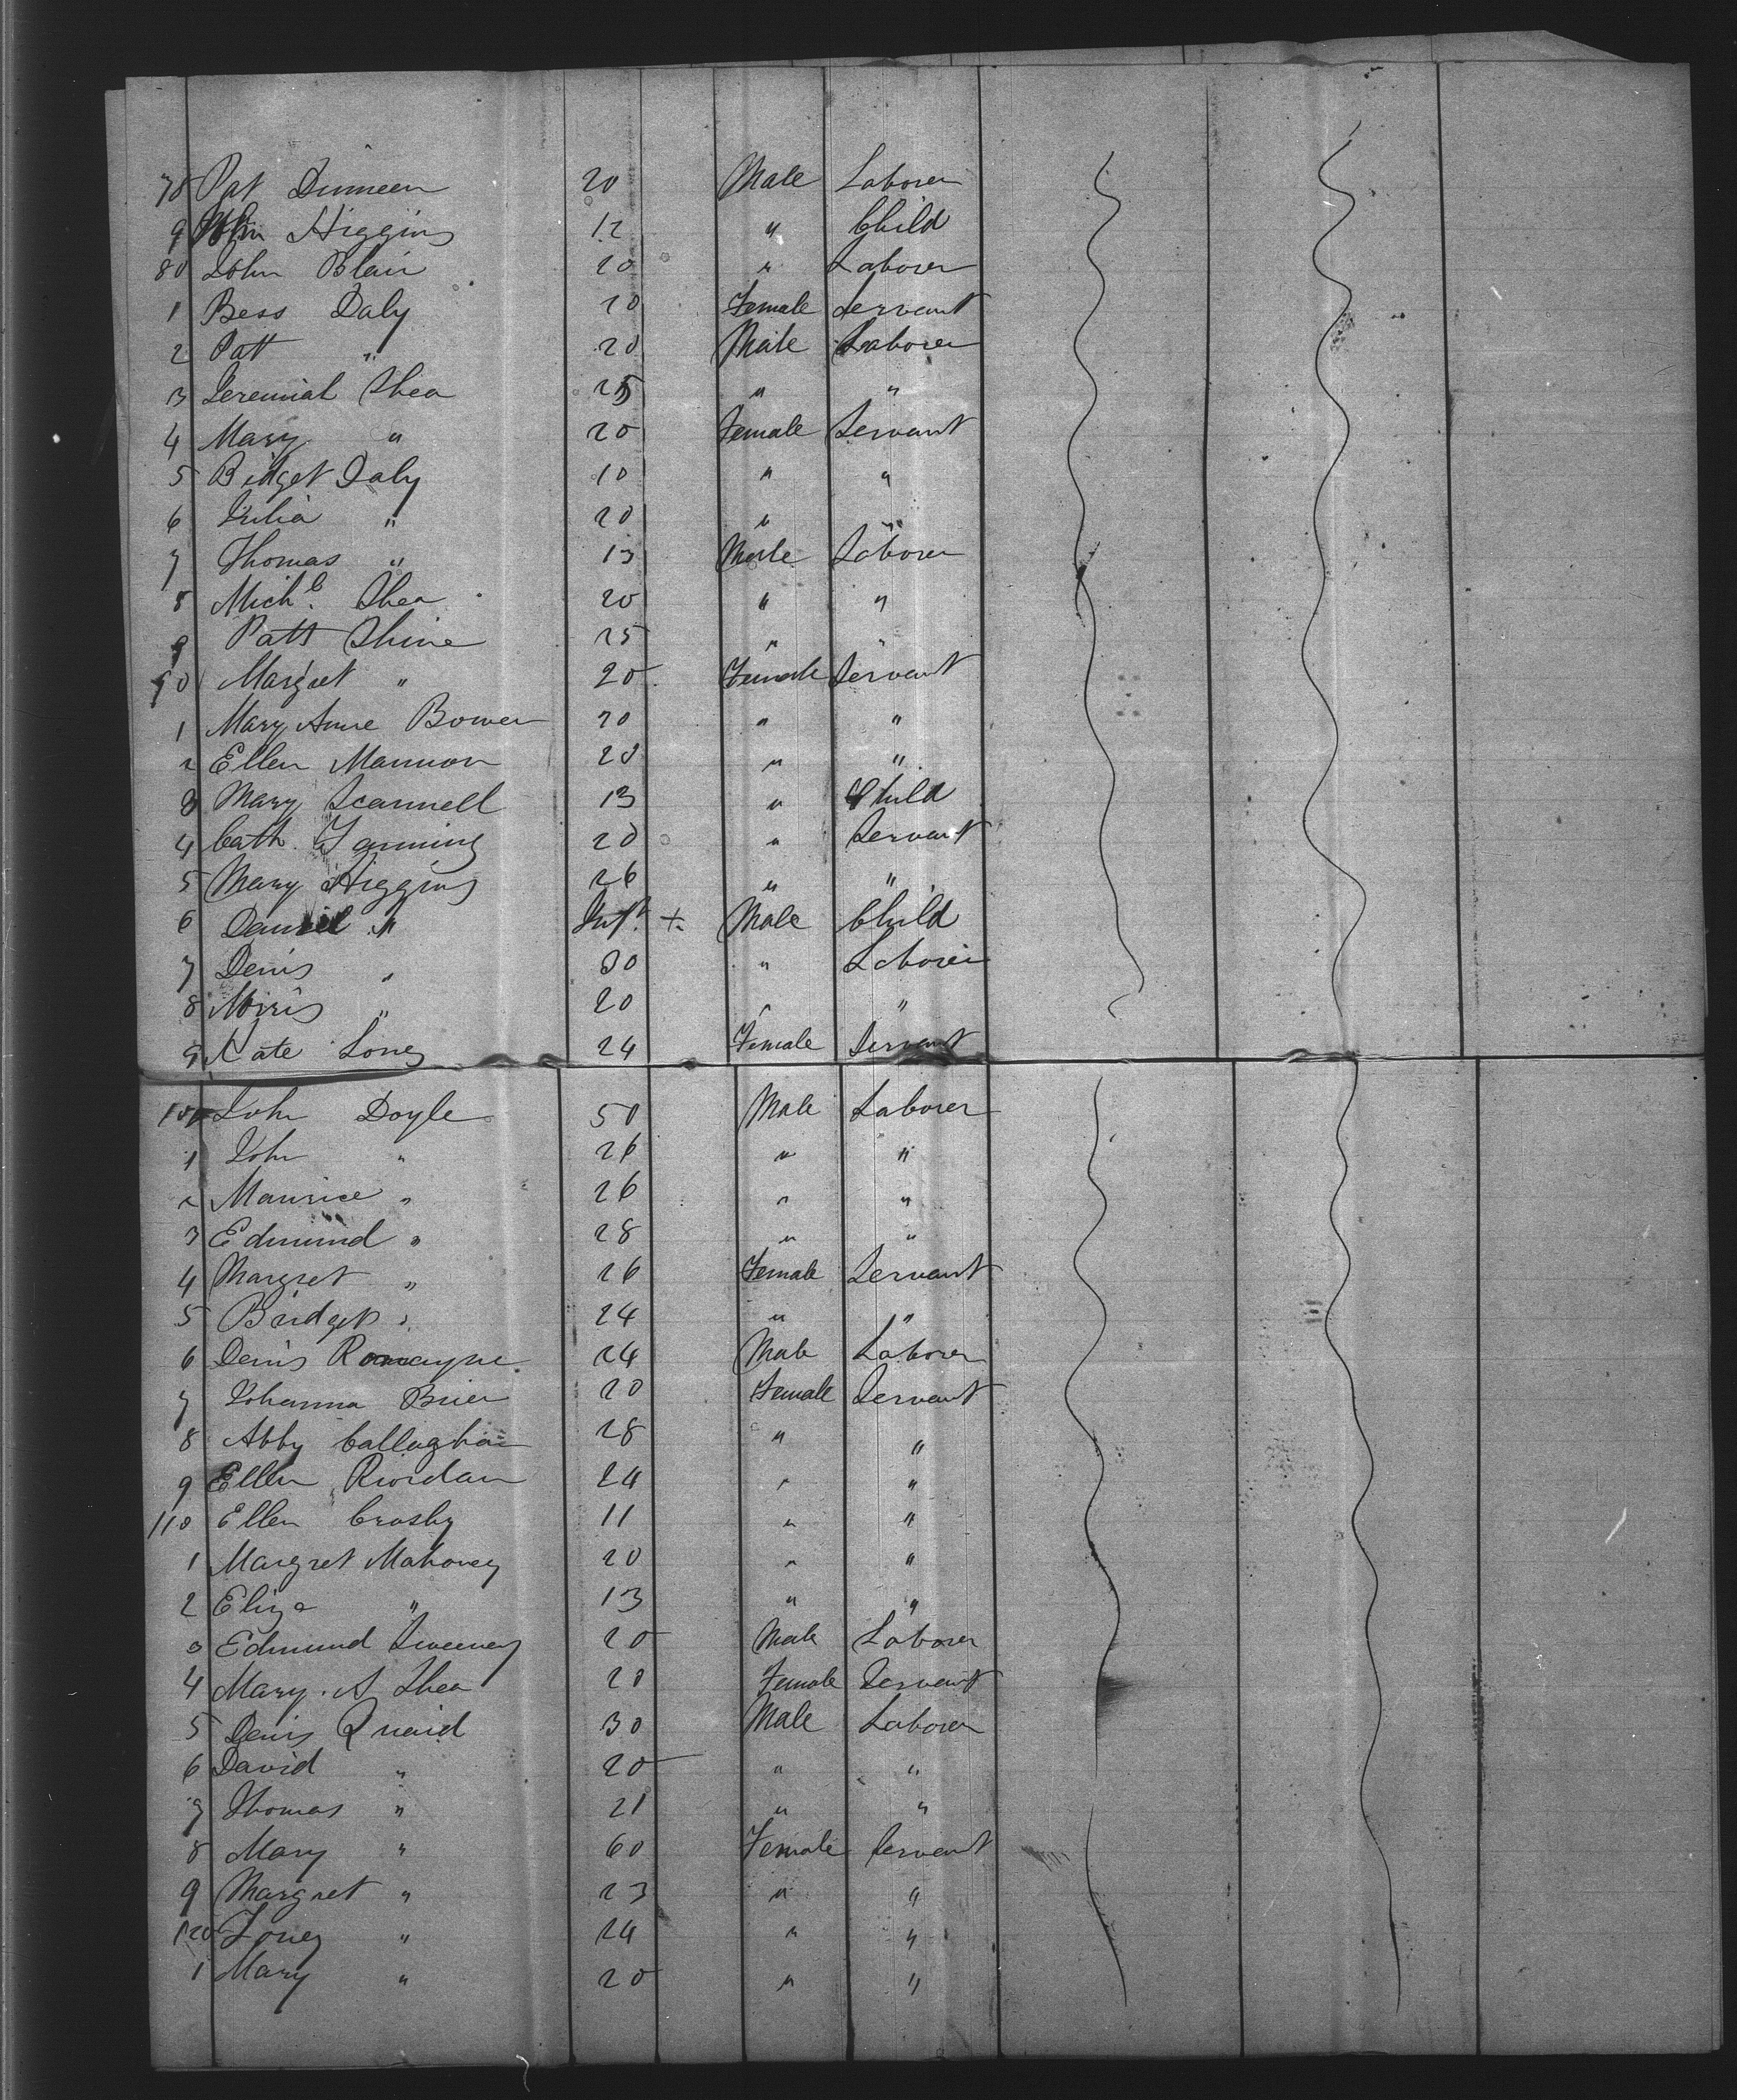 78 Pat Dinneen 20 Male Laborer
9 John Higgins 12 " Child
80 John Blair 20 " Laborer
1 Bess Daly 20 Female Servant
2 Patt " 20 Male Laborer
3 Jeremiah Shea 25 " "
4 Mary " 20 Female Servant
5 Bidget Daly 10 " "
6 Julia " 20 " "
7 Thomas " 13 Male Laborer
8 Michl. Shea 20 " "
9 Patt Shine 25 " "
90 Margret " 20 Female Servant
1 Mary Anne Bowen 20 " "
2 Ellen Mannion 20 " "
3 Mary Scannell 13 " Child
4 Cath. Fanning 20 " Servant
5 Mary Higgins 26 " "
6 Daniel " Inft. + Male Child
7 Denis " 30 " Laborer
8 Morris " 20 " "
9 Kate Long 24 Female Servant
100 John Doyle 50 Male Laborer
1 John " 26 " "
2 Maurice " 26 " "
3 Edmund " 28 " "
4 Margret " 26 Female Servant
5 Bridget " 24 " "
6 Denis Romayne 24 Male Laborer
7 Johanna Brien 20 Female Servant
8 Abby Callaghan 28 " "
9 Ellen Riordan 24 " "
110 Ellen Crosby 11 " "
1 Margret Mahoney 20 " "
2 Eliza " 13 " "
3 Edmund Sweeney 20 Male Laborer
4 Mary. A Shea 20 Female Servant
5 Denis Quaid 30 Male Laborer
6 David " 20 " "
7 Thomas " 21 " "
8 Mary " 60 Female Servant
9 Margret " 23 " "
120 " 24 " "
1 Mary " 20 " "